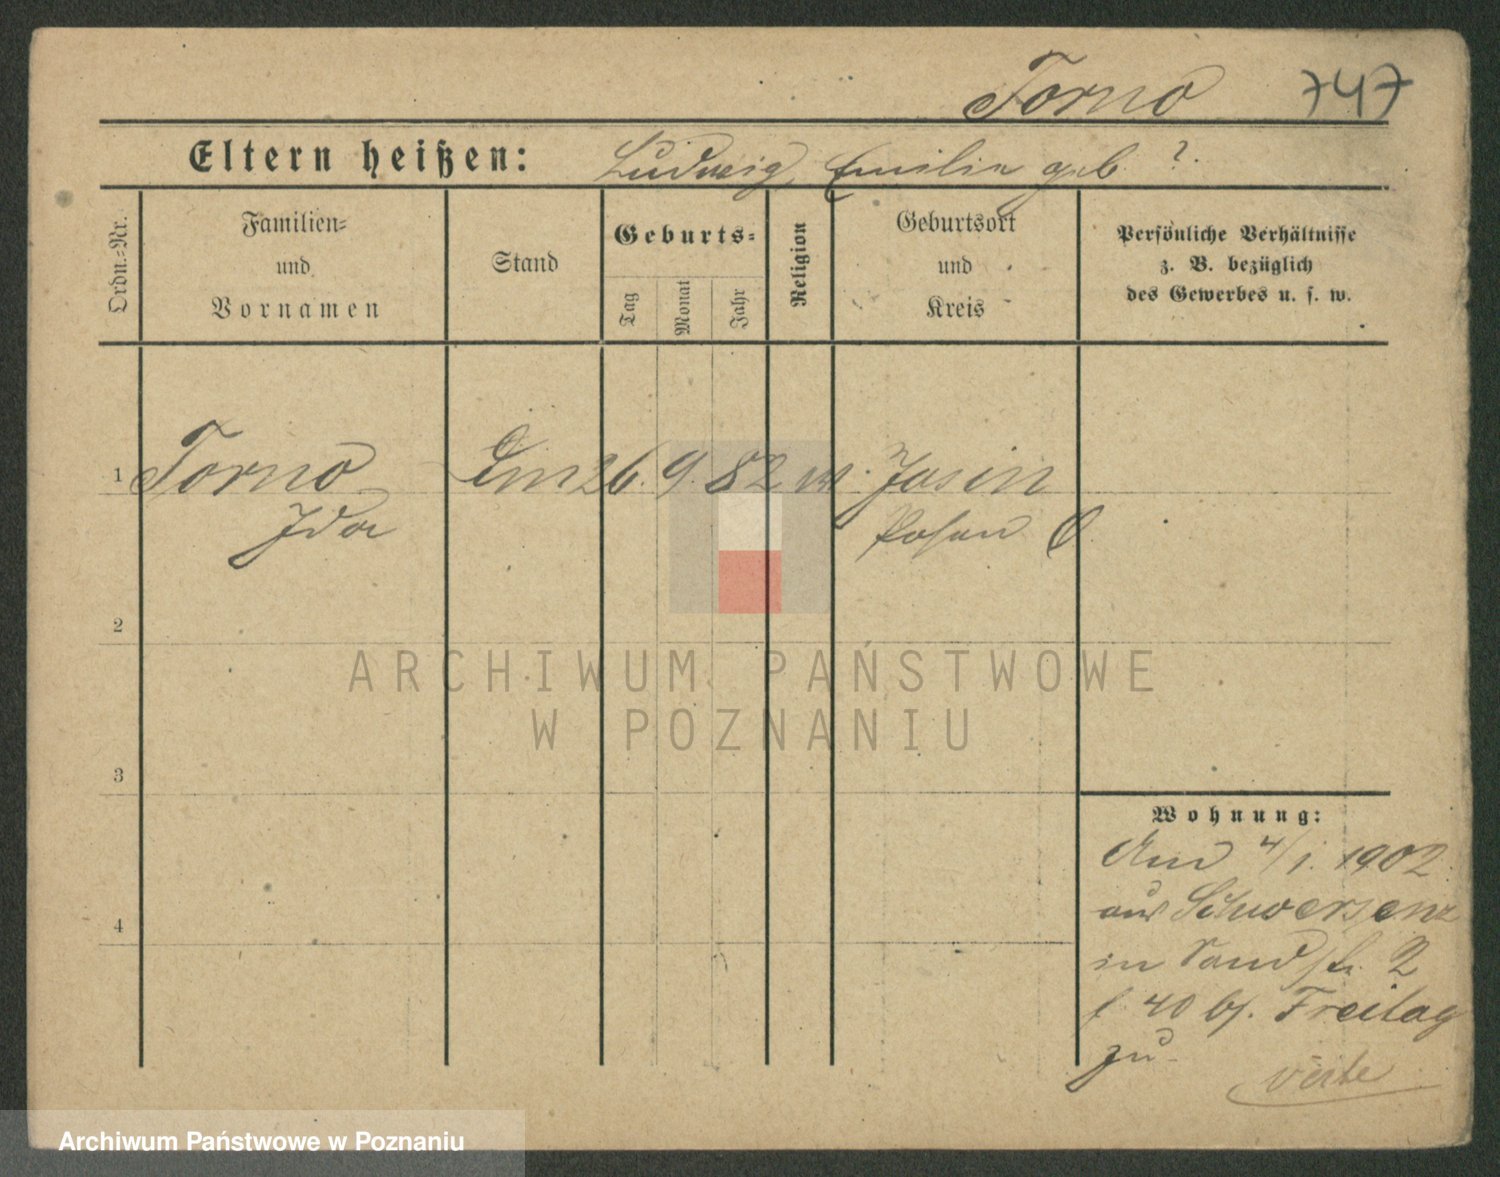 Torno 747
Eltern heißen: Ludwig, Emilie geb. ?
Ordn.=Nr.
Familien=
und
Vornamen
Stand
Geburts=
Tag
Monat
Jahr
Religion
Geburtsort
und
Kreis
Persönliche Verhältnisse
z. B. bezüglich
des Gewerbes u. s. w.
1 Torno 26. 9. 82 Jasin
Ida Posen O.
2
3
4
Wohnung:
Am 4/1. 1902
aus Schwersenz
in Sandstr. 2
b/. Freitag
zu.
verte
ARCHIWUM PAŃSTWOWE
W POZNANIU
Archiwum Państwowe w Poznaniu